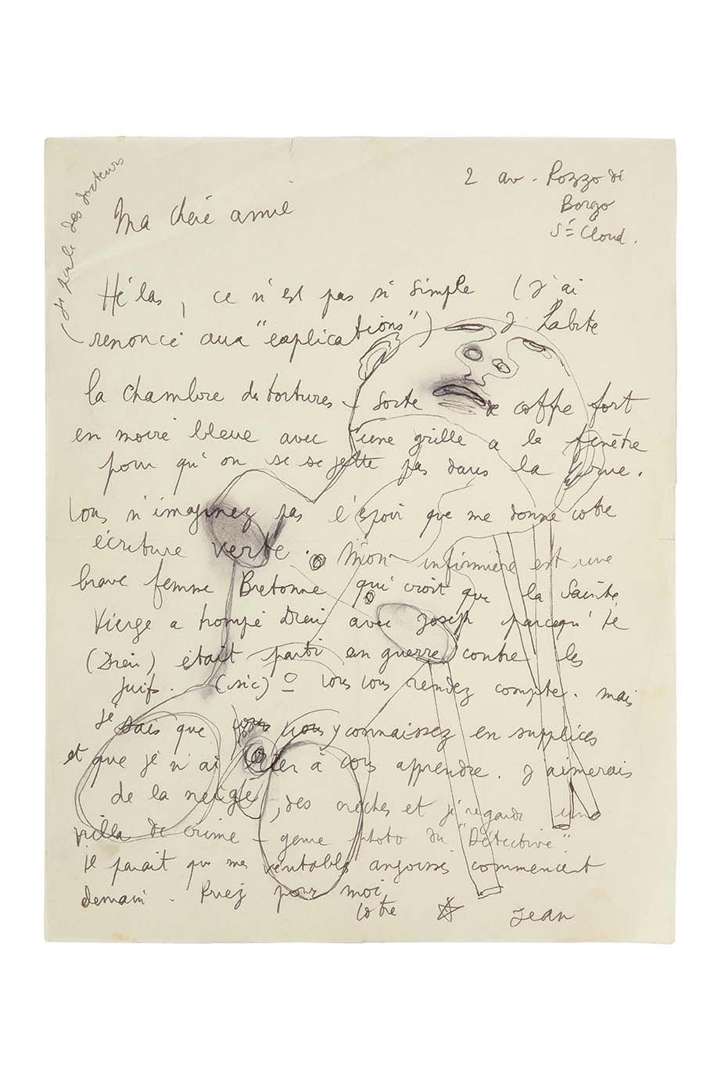 2 av. Pozzo di
Borgo
St Cloud.
Ma chère amie
Hélas, ce n'est pas si simple (J'ai
renoncé aux "explications") J'habite
la chambre des tortures - sorte de coffre fort
en moire bleue avec une grille a la fenêtre
pour qu'on se se jette pas dans la
Vous n'imaginez pas l'espoir que me donne votre
écriture verte. Mon infirmière est une
brave femme Bretonne qui croit que la Sainte
Vierge a trompé Dieu avec Joseph parcequ'
(Dieu) était parti en guerre contre les
juifs. (sic) Vous vous rendez compte. mais
je sais que vous vous y connaissez en supplices
et que je n'ai rien à vous apprendre. J'aimerais
de la neige, des crèches et je regarde une
villa de crime - genre photo du "Détective".
Il parait que mes véritables angoisses commencent
demain. Priez pour moi
votre ☆ Jean